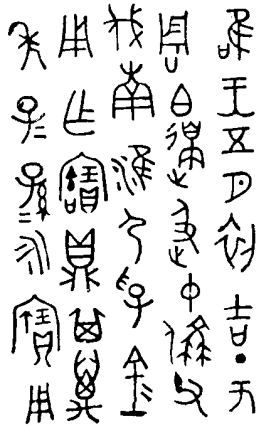 隹王五月初吉丁亥
周白邊及中偁父
伐南淮尸孚金
用乍寶鼎其萬
年子=孫=永寶用